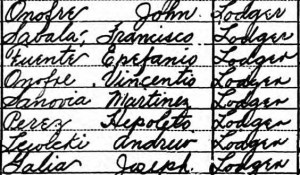 Onofre John Lodger
Sabala, Francisco Lodger
Fuente Epefanio Lodger
Onofre, Vincentio Lodger
Sanovia Martinez Lodger
Perez Hepoleto Lodger
Andrew Lodger
Galia Joseph Lodger